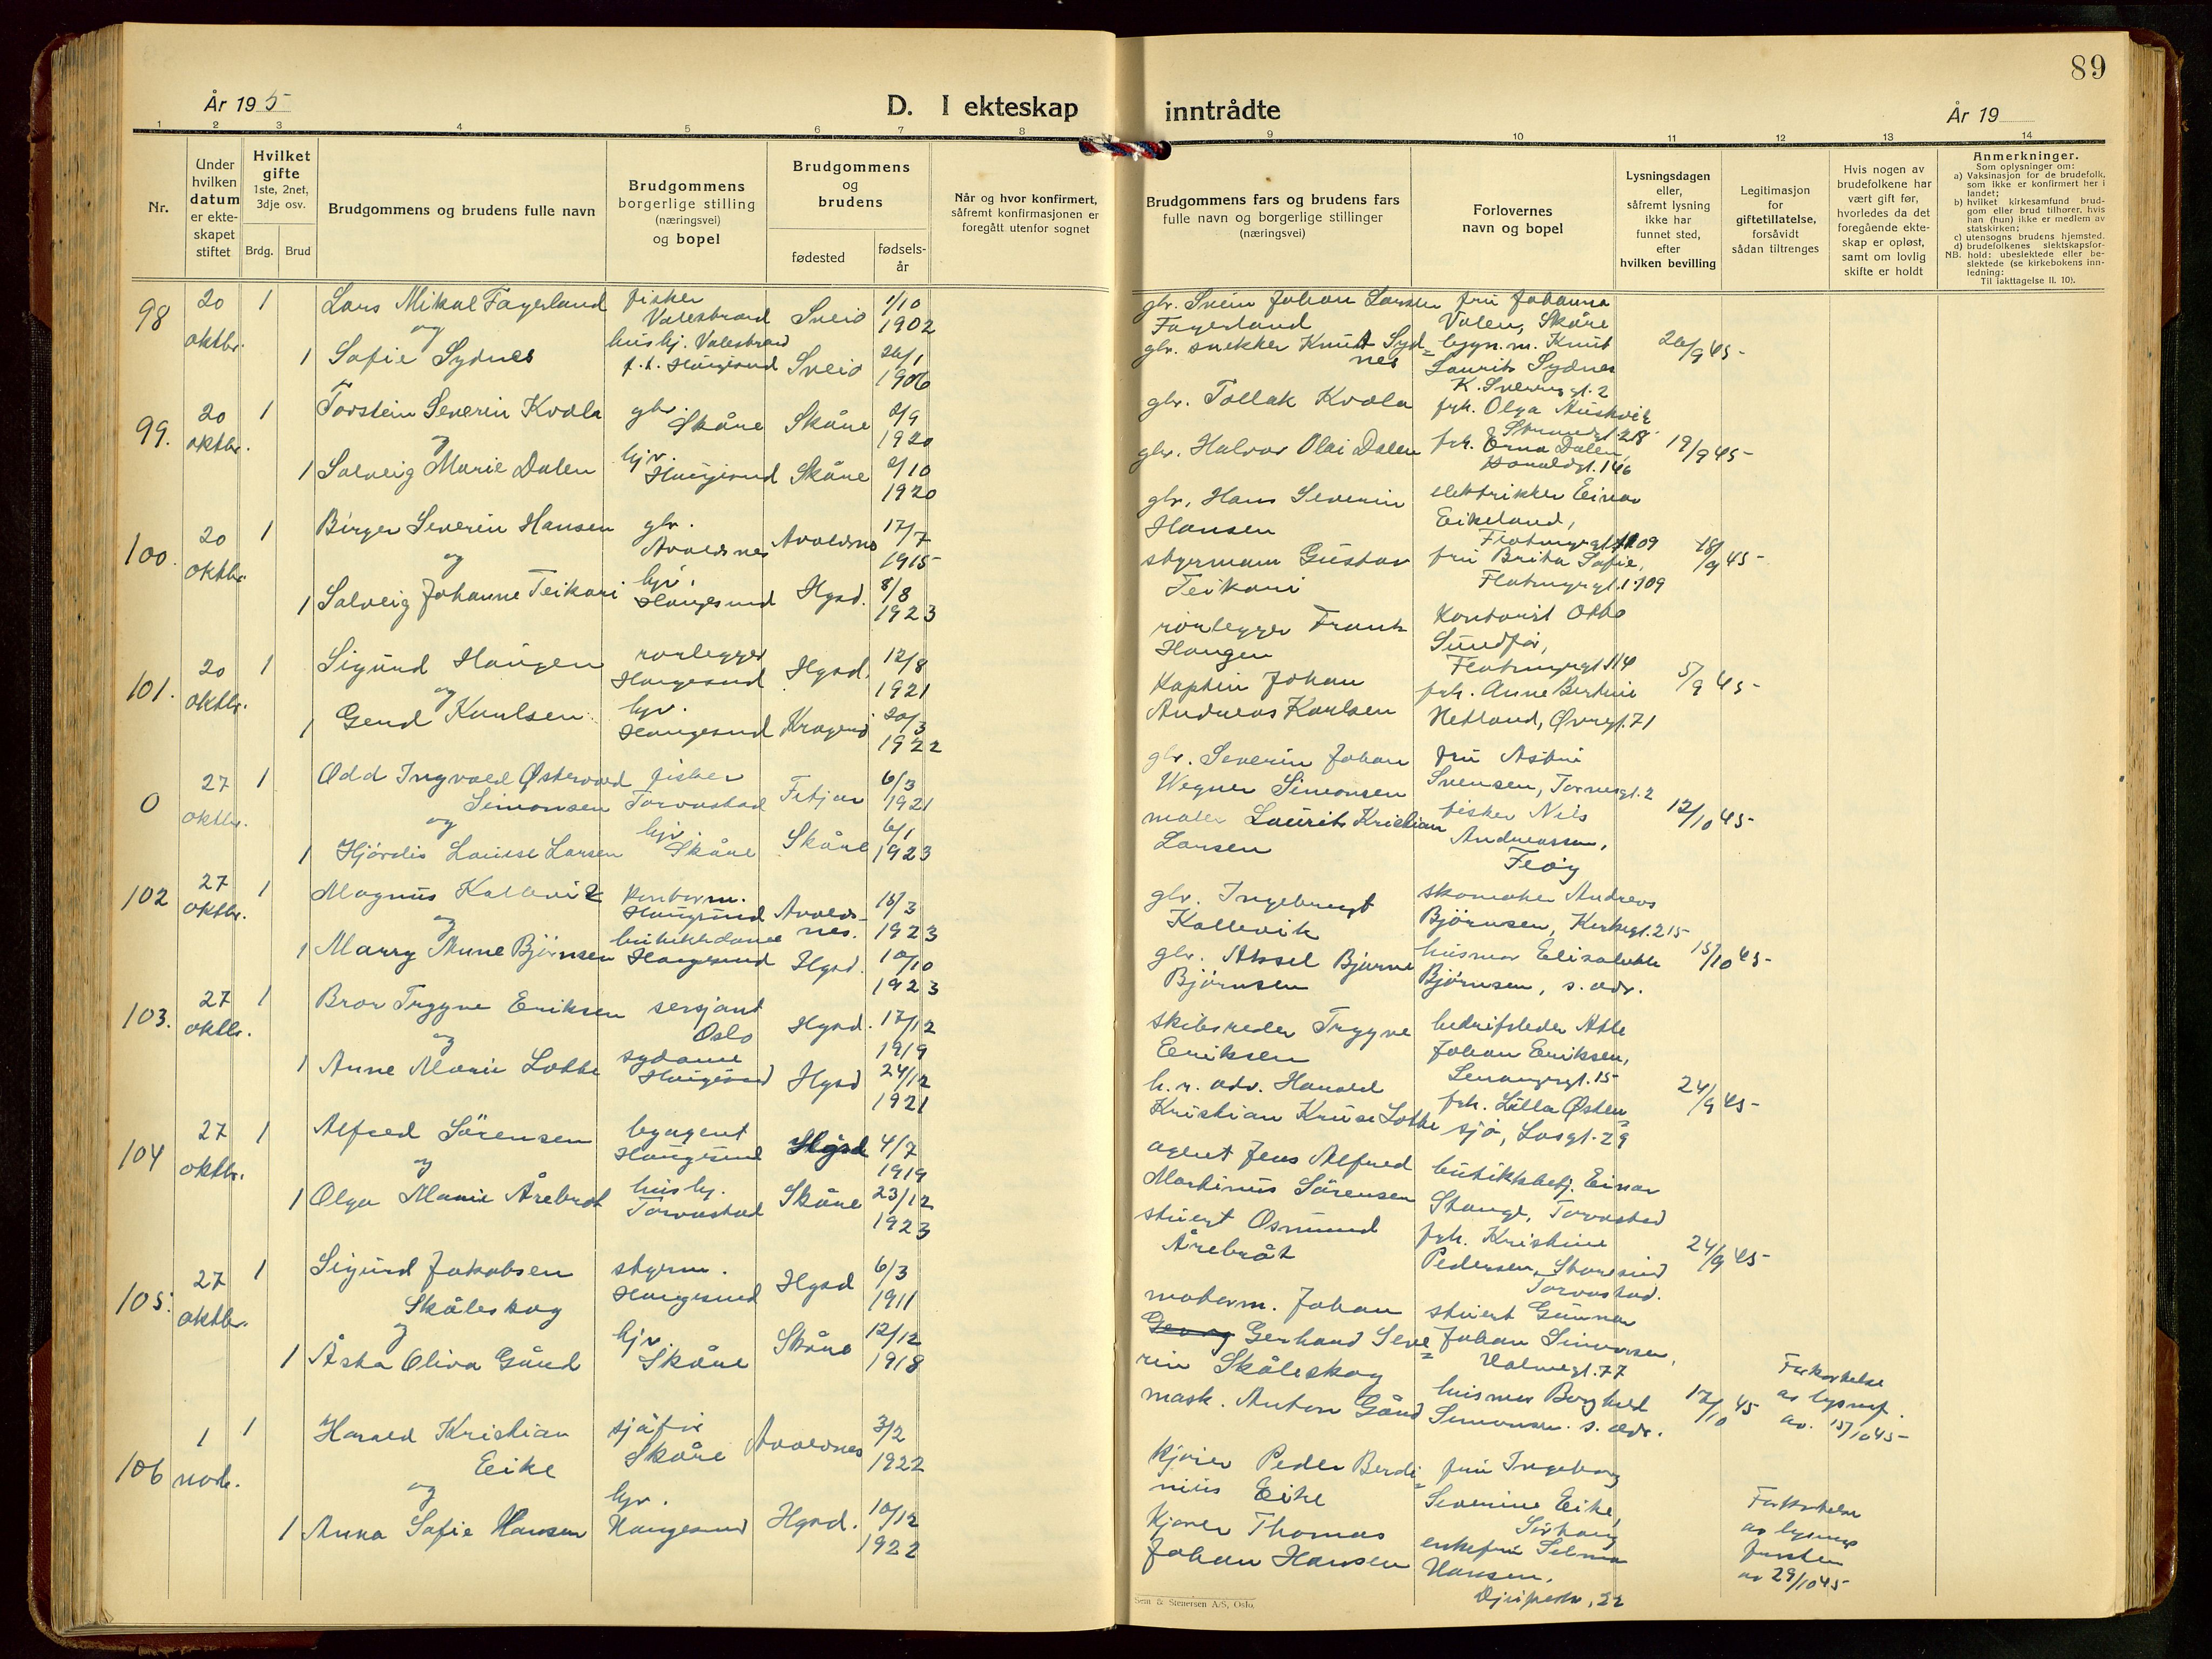 89
År 195
D. I ekteskap inntrådte
År 19
1 2 3 4 5 6 7 8 9 10 11 12 13 14
Nr.
Under
hvilken
datum
er ekte-
skapet
stiftet
Hvilket
gifte
1ste, 2net,
3dje osv.
Brdg. Brud
Brudgommens og brudens fulle navn
Brudgommens
borgerlige stilling
(næringsvei)
og bopel
Brudgommens
og
brudens
fødested
fødsels-
år
Når og hvor konfirmert,
såfremt konfirmasjonen er
foregått utenfor sognet
Brudgommens fars og brudens fars
fulle navn og borgerlige stillinger
(næringsvei)
Forlovernes
navn og bopel
Lysningsdagen
eller,
såfremt lysning
ikke har
funnet sted,
efter
hvilken bevilling
Legitimasjon
for
giftetillatelse,
forsåvidt
sådan tiltrenges
Hvis nogen av
brudefolkene har
vært gift før,
hvorledes da det
foregående ekte-
skap er opløst,
samt om lovlig
skifte er holdt
Anmerkninger.
Som oplysninger om:
a) Vaksinasjon for de brudefolk,
som ikke er konfirmert her i
landet;
b) hvilket kirkesamfund brud-
gom eller brud tilhører, hvis
han (hun) ikke er medlem av
statskirken;
c) utensogns brudens hjemsted.
d) brudefolkenes slektskapsfor-
NB. hold: ubeslektede eller be-
slektede (se kirkebokens inn-
ledning:
Til iakttagelse II. 10).
98 20 oktbr. 1 Lars Mikal Fagerland
og
1 Sofie Sydnes
fisker
Valestrand
hushj. Valestrand
f.t. Haugesund
Sveio 1/10 1902
Sveio 26/1 1906
gbr. Svein Johan Larsen
Fagerland
gbr. snekker Knut Syd=
nes
fru Johanna
Valen, Skåre
bygn.m. Knut
Laurits Sydnes
K. Sverresgt. 2
26/9 45
99. 20 oktbr. 1 Torstein Severin Kvala
og
1 Solveig Marie Dalen
gbr.
Skåre
hjv.
Haugesund
Skåre 2/9 1920
Skåre 2/10 1920
gbr. Tollak Kvala
gbr. Halvor Olai Dalen
frk. Olga
Strandgt. 218
frk. Erna Dalen,
Haraldgt. 146
19/9 45
100. 20 oktbr. 1 Birger Severin Hansen
og
1 Solveig Johanne Teikari
gbr.
Avaldsnes
hjv.
Haugesund
Avaldsnes 17/7 1915
Hgsd. 8/8 1923
gbr. Hans Severin
Hansen
styrmann Gustav
Teikari
elektriker Einar
Eikeland,
Flotmyrgt. 109
fru Brita Sofie,
Flotmyrgt. 109
18/9 45
101. 20 oktbr. 1 Sigurd Haugen
og
1 Gerd Karlsen
rørlegger
Haugesund
hjv.
Haugesund
Hgsd. 12/8 1921
Kragerø 20/3 1922
rørlegger Frank
Haugen
Kaptein Johan
Andreas Karlsen
Kontorist Otto
Sundfør,
Flotmyrgt. 114
frk. Anne Bertine
Netland, Øvregt. 71
5/9 45
0 27 oktbr. 1 Odd Ingvald Østervold
Simonsen
og
1 Hjørdis Louise Larsen
fisker
Torvastad
hjv.
Skåre
Fitjar 6/3 1921
Skåre 6/1 1923
gbr. Severin Johan
Wegner Simonsen
maler Laurits Kristian
Larsen
fru Astri
Svensen, Tornesgt. 2
fisker Nils
Andreassen,
Feøy
12/10 45
102 27 oktbr. 1 Magnus Kallevik
og
1 Marry Anne Bjørnsen
kontorm.
Haugesund
butikkdame
Haugesund
Avalds-
nes. 15/3 1923
Hgsd. 10/10 1923
gbr. Ingebregt
Kallevik
gbr. Aksel Bjarne
Bjørnsen
skomaker Andreas
Bjørnsen, Kirkegt. 215
husmor Elisabeth
Bjørnsen, s. adr.
15/10 45
103. 27 oktbr. 1 Bror Trygve Eriksen
og
1 Anne Marie Lothe
sersjant
Oslo
sydame
Haugesund
Hgsd. 17/12 1919
Hgsd 24/12 1921
skibsreder Trygve
Eriksen
h.r. adv. Harald
Kristian Kruse Lothe
bedriftsleder Atle
Johan Eriksen,
15
frk. Lilla Østen=
sjø, 29
24/9 45
104 27 oktbr. 1 Alfred Sørensen
og
1 Olga Marie Årebrot
byagent
Haugesund
hushj.
Torvastad
Hgsd 4/7 1919
Skåre 23/12 1923
agent Jens Alfred
Martinus Sørensen
stuert Osmund
Årebråt
butikkbetj. Einar
Stange, Torvastad
frk. Kristine
Pedersen, Storesund
Torvastad.
24/9 45
105. 27 oktbr. 1 Sigurd Jakobsen
Skåleskog
og
1 Åsta Oliva Gård
styrm.
Haugesund
hjv.
Skåre
Hgsd 6/3 1911
Skåre 12/12 1918
motorm. Johan
Georg Gerhard Seve=
rin Skåleskog
mask. Anton Gård
stuert Gunnar
Johan Simonsen,
77
husmor Borghild
Simonsen. s. adr.
12/10 45
Forkortelse
av lysnf.
av. 15/10 45
106 1 novbr. 1 Harald Kristian
Eike
og
1 Anna Sofie Hansen
sjåfør
Skåre
hjv.
Haugesund
Avaldsnes 3/2 1922
Hgsd. 10/12 1922
kjører Peder Berdi=
nius Eike
kjører Thomas
Johan Hansen
fru Ingeborg
Severine Eike,
Sørhaug
enkefru Selma
Hansen,
22
Forkortelse
av lysnings
fristen
av 29/10 45
Sem & Stenersen A/S, Oslo.